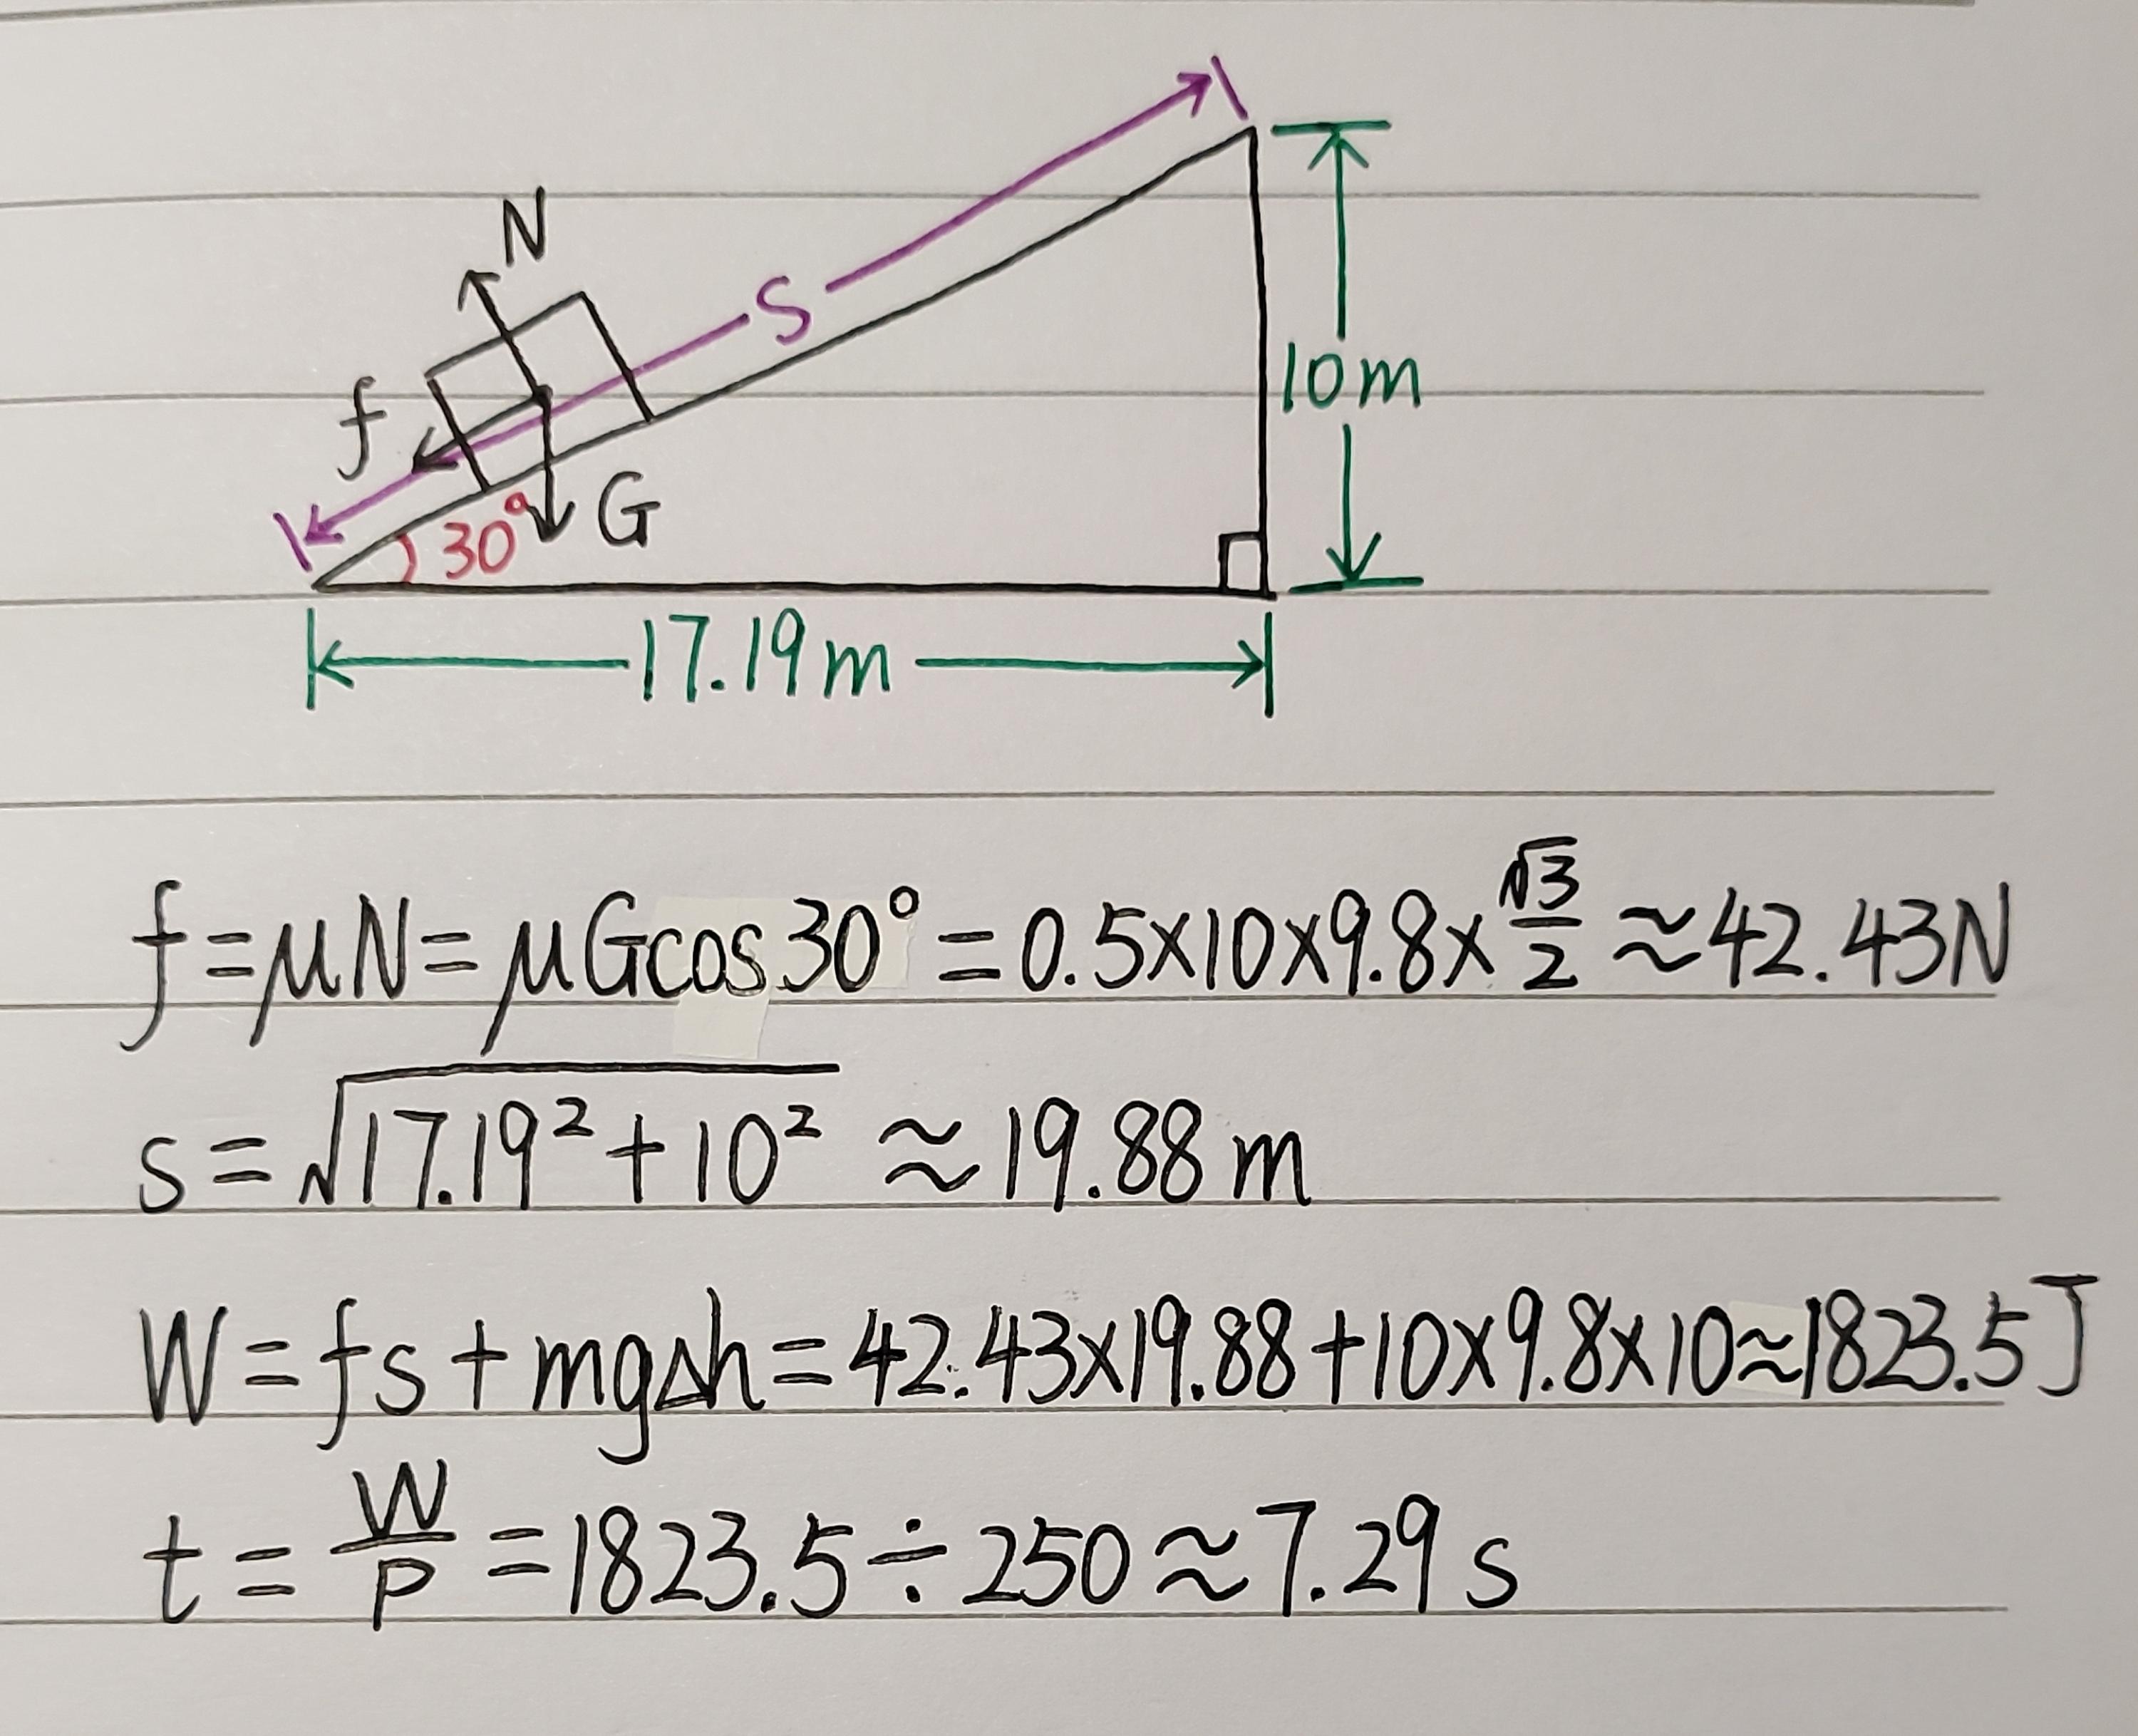 N
S
f
10m
G
30°
17.19m
f=μN=μGcos30°=0.5×10×9.8×√3/2≈42.43N
s=√(17.19²+10²)≈19.88m
W=fs+mgΔh=42.43×19.88+10×9.8×10≈1823.5J
t=W/P=1823.5÷250≈7.29s